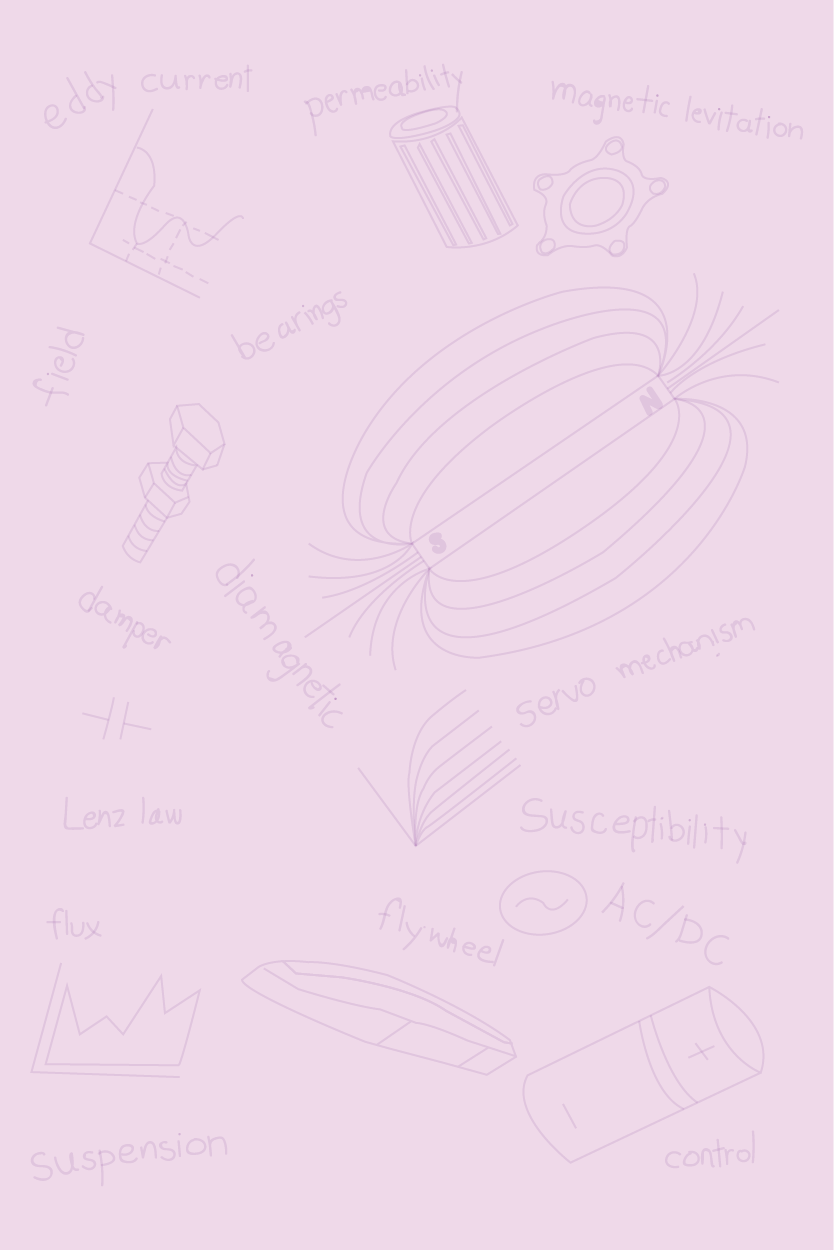 eddy current
permeability
magnetic levitation
bearings
field
N
S
diamagnetic
damper
servo mechanism
Lenz law
Susceptibility
flux
flywheel
AC/DC
+
-
Suspension
control